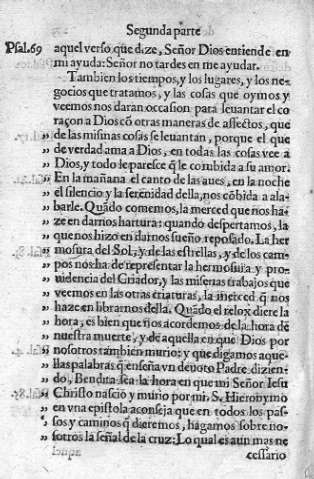 Segunda parte
Psal.69 aquel verso que dize, Señor Dios entiende en
mi ayuda: Señor no tardes en me ayudar.
Tambien los tiempos, y los lugares, y los ne-
gocios que tratamos, y las cosas que oymos y
veemos nos daran occasion para leuantar el co
raçon a Dios cō otras maneras de affectos, que
„ de las misinas cosas se leuantan, porque el que
„ de verdad ama a Dios, en todas las cosas vee a
„ Dios, y todo le parece q̄ le cōbida a su amor.
„ En la mañana el canto de las aues, en la noche
„ el silencio y la serenidad della, nos cōbida a ala-
„ barle. Quādo comemos, la merced que nos ha-
„ ze en darnos hartura: quando despertamos, la
„ que nos hizo en darnos sueño reposado. La her
„ mosura del Sol, y de las estrellas, y de los cam-
„ pos nos ha de representar la hermosura y pro-
„ uidencia del Criador, y las miserias trabajos que
„ veemos en las otras criaturas, la merced q̄ nos
„ haze en librarnos della. Quādo el relox diere la
„ hora, es bien que nos acordemos de la hora de
„ nuestra muerte, y de aquella en que Dios por
„ nosotros tambien murio: y que digamos aque-
„ llas palabras q̄ enseña vn deuoto Padre dizien-
„ do, Bendita sea la hora en que mi Señor Iesu
„ Christo nascio y murio por mi. S. Hieronymo
„ en vna epistola aconseja que en todos los pas-
„ sos y caminos q̄ dieremos, hagamos sobre no-
„ sotros la señal de la cruz: Lo qual es aun mas ne
cessario